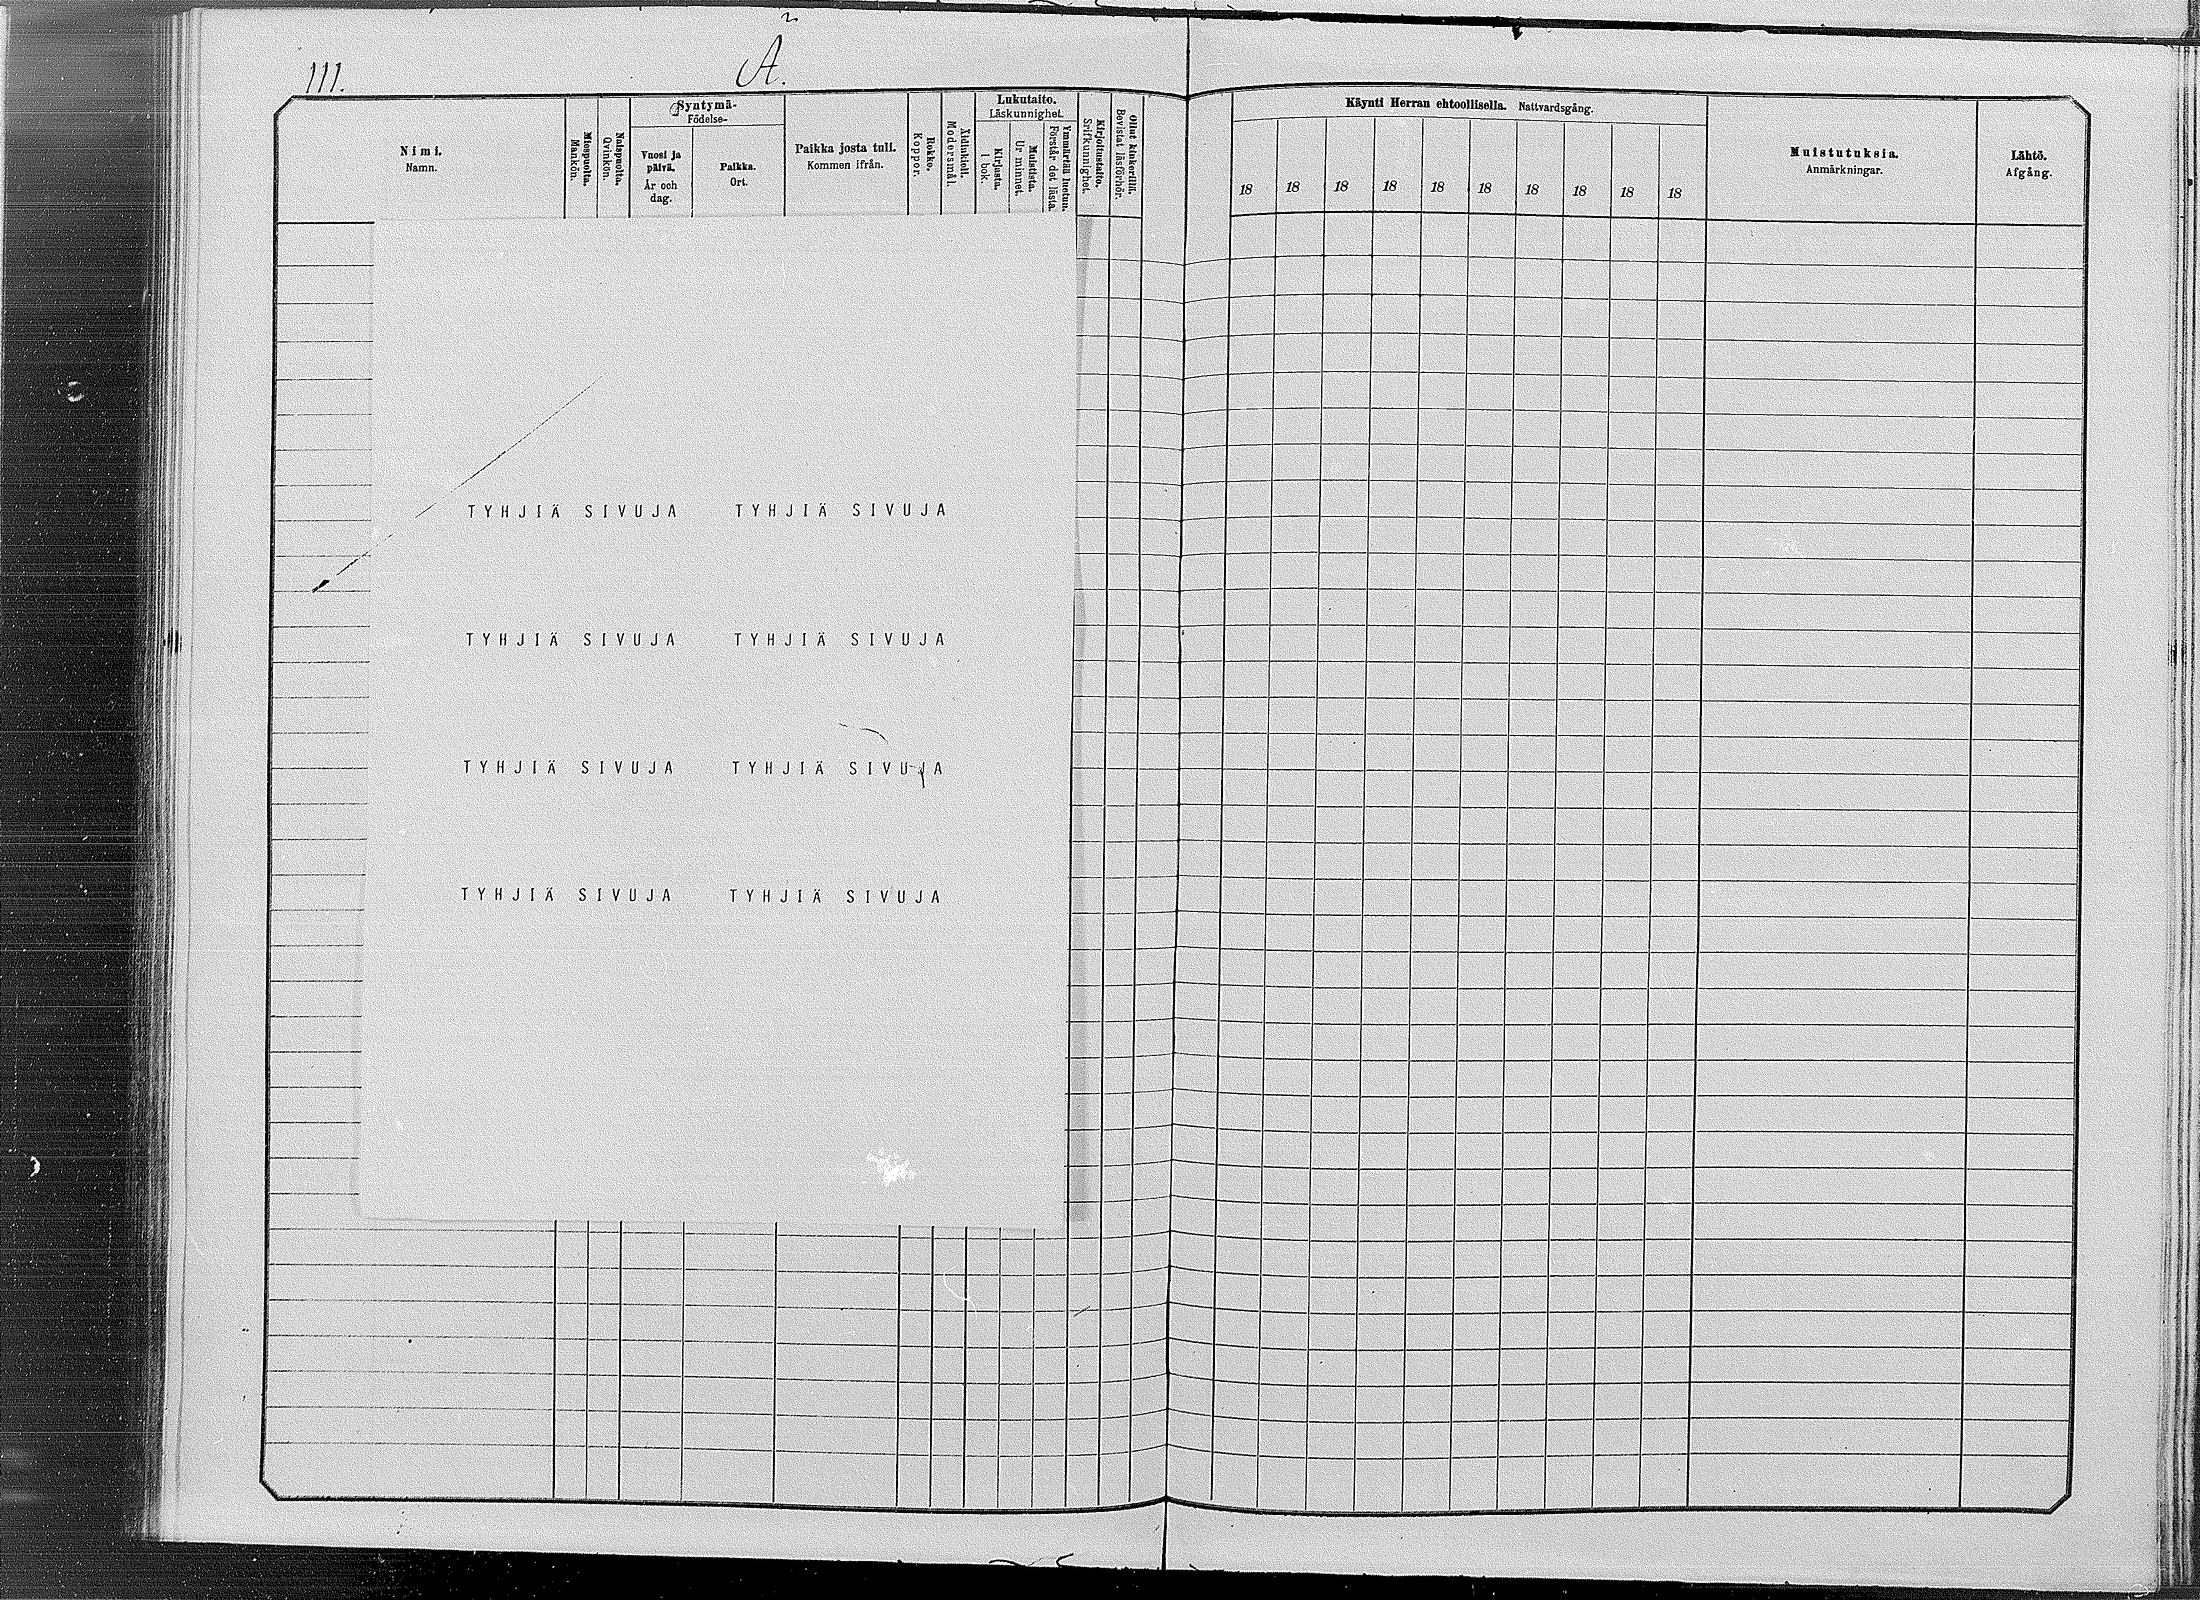 111.
A.
Nimi.
Namn.
Miespuolta.
Mankön.
Naispuolta.
Qvinkön.
Syntymä-
Födelse-
Vuosi ja
päivä.
År och
dag.
Paikka.
Ort.
Paikka josta tuli.
Kommen ifrån.
Rokko.
Koppor.
Äidinkieli.
Modersmål.
Lukutaito.
Läskunnighet.
Kirjasta.
I bok.
Muistista.
Ur minnet.
Ymmärtää luetun.
Förstår det lästa.
Kirjoitustaito.
Srifkunnighet.
Ollut kinkerillä.
Bevistat läsförhör.
Käynti Herran ehtoollisella. Nattvardsgång.
18 18 18 18 18 18 18 18 18 18
Muistutuksia.
Anmärkningar.
Lähtö.
Afgång.
TYHJIÄ SIVUJA TYHJIÄ SIVUJA
TYHJIÄ SIVUJA TYHJIÄ SIVUJA
TYHJIÄ SIVUJA TYHJIÄ SIVUJA
TYHJIÄ SIVUJA TYHJIÄ SIVUJA